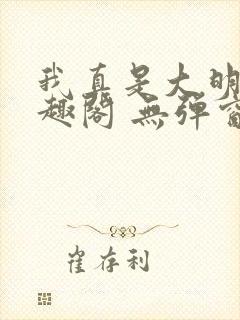 我真是大明
趣阁 無弹窗
崔存利